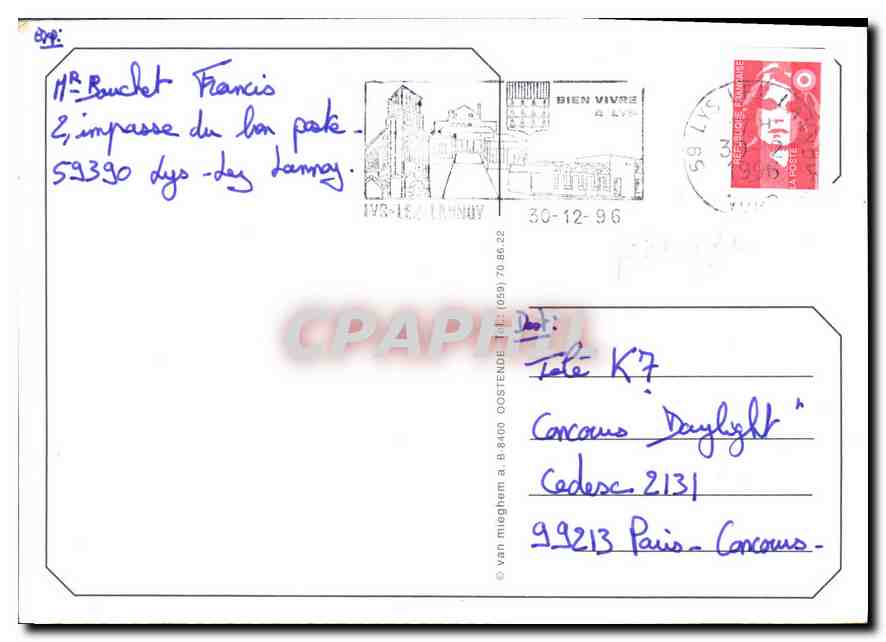 Exp:
Mr Bouchet Francis
2, impasse du bon poste -
59390 Lys-Lez Lannoy.
BIEN VIVRE
A LYS
LYS-LEZ-LANNOY
30-12-96
59 LYS
1996
REPUBLIQUE FRANÇAISE
LA POSTE
© van mieghem a. B-8400 OOSTENDE Tel.: (059) 70.86.22
CPAPHIL
Dest:
Télé K7
Concours Daylight "
Cedesc 2131
99213 Paris - Concours -